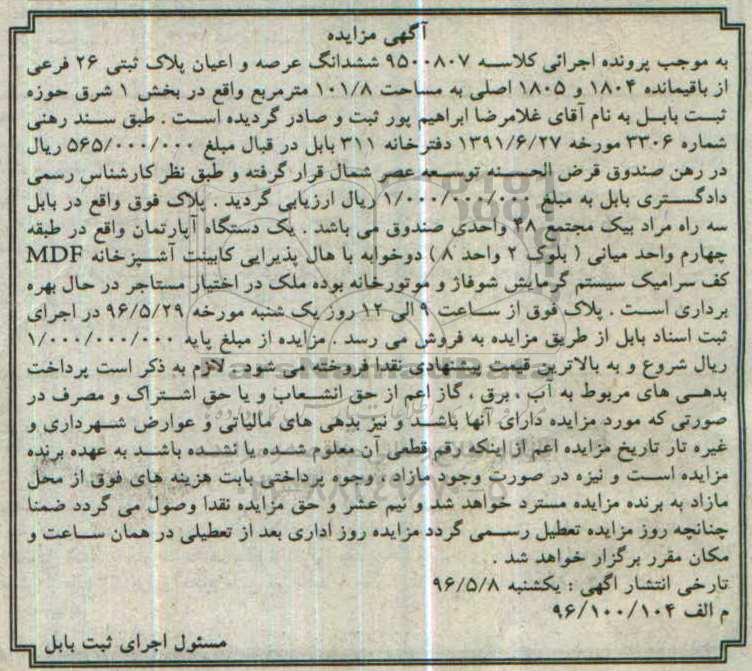 آگهی مزایده
به موجب پرونده اجرائی کلاسه ۹۵۰۰۸۰۷ ششدانگ عرصه و اعیان پلاک ثبتی ۲۶ فرعی
از باقیمانده ۱۸۰۴ و ۱۸۰۵ اصلی به مساحت ۱۰۱/۸ مترمربع واقع در بخش ۱ شرق حوزه
ثبت بابل به نام آقای غلامرضا ابراهیم پور ثبت و صادر گردیده است . طبق سند رهنی
شماره ۳۳۰۶ مورخه ۱۳۹۱/۶/۲۷ دفترخانه ۳۱۱ بابل در قبال مبلغ ۵۶۵/۰۰۰/۰۰۰ ریال
در رهن صندوق قرض الحسنه توسعه عصر شمال قرار گرفته و طبق نظر کارشناس رسمی
دادگستری بابل به مبلغ ۱/۰۰۰/۰۰۰/۰۰۰ ریال ارزیابی گردید . پلاک فوق واقع در بابل
سه راه مراد بیک مجتمع ۲۸ واحدی صندوق می باشد . یک دستگاه آپارتمان واقع در طبقه
چهارم واحد میانی ( بلوک ۲ واحد ۸ ) دوخوابه با هال پذیرایی کابینت آشپزخانه MDF
کف سرامیک سیستم گرمایش شوفاژ و موتورخانه بوده ملک در اختیار مستاجر در حال بهره
برداری است . پلاک فوق از ساعت ۹ الی ۱۲ روز یک شنبه مورخه ۹۶/۵/۲۹ در اجرای
ثبت اسناد بابل از طریق مزایده به فروش می رسد . مزایده از مبلغ پایه ۱/۰۰۰/۰۰۰/۰۰۰
ریال شروع و به بالاترین قیمت پیشنهادی نقدا فروخته می شود . لازم به ذکر است پرداخت
بدهی های مربوط به آب ، برق ، گاز اعم از حق انشعاب و یا حق اشتراک و مصرف در
صورتی که مورد مزایده دارای آنها باشد و نیز بدهی های مالیاتی و عوارض شهرداری و
غیره تار تاریخ مزایده اعم از اینکه رقم قطعی آن معلوم شده یا نشده باشد به عهده برنده
مزایده است و نیزه در صورت وجود مازاد ، وجوه پرداختی بابت هزینه های فوق از محل
مازاد به برنده مزایده مسترد خواهد شد و نیم عشر و حق مزایده نقدا وصول می گردد ضمنا
چنانچه روز مزایده تعطیل رسمی گردد مزایده روز اداری بعد از تعطیلی در همان ساعت و
مکان مقرر برگزار خواهد شد .
تارخی انتشار اگهی : یکشنبه ۹۶/۵/۸
م الف ۹۶/۱۰۰/۱۰۴
مسئول اجرای ثبت بابل